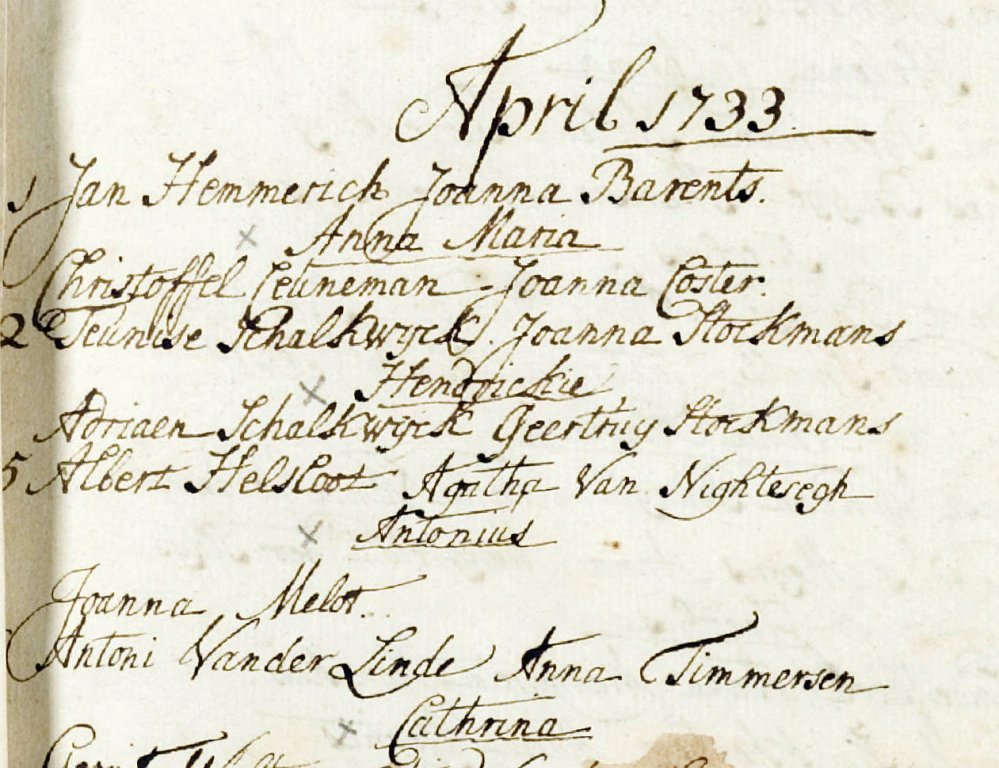 April 1733
1 Jan Hemmerich Joanna Barents.
Anna Maria
Christoffel Ceuneman Joanna Coster.
2 Teunisse Schalkwyck. Joanna Stockmans
Hendrickie
Adriaen Schalkwyck Geertruy Stockmans
5 Albert Helsloot Agatha Van Nightesegh
Antonius
Joanna Melot.
Antoni Vander Linde Anna Timmersen
Cathrina